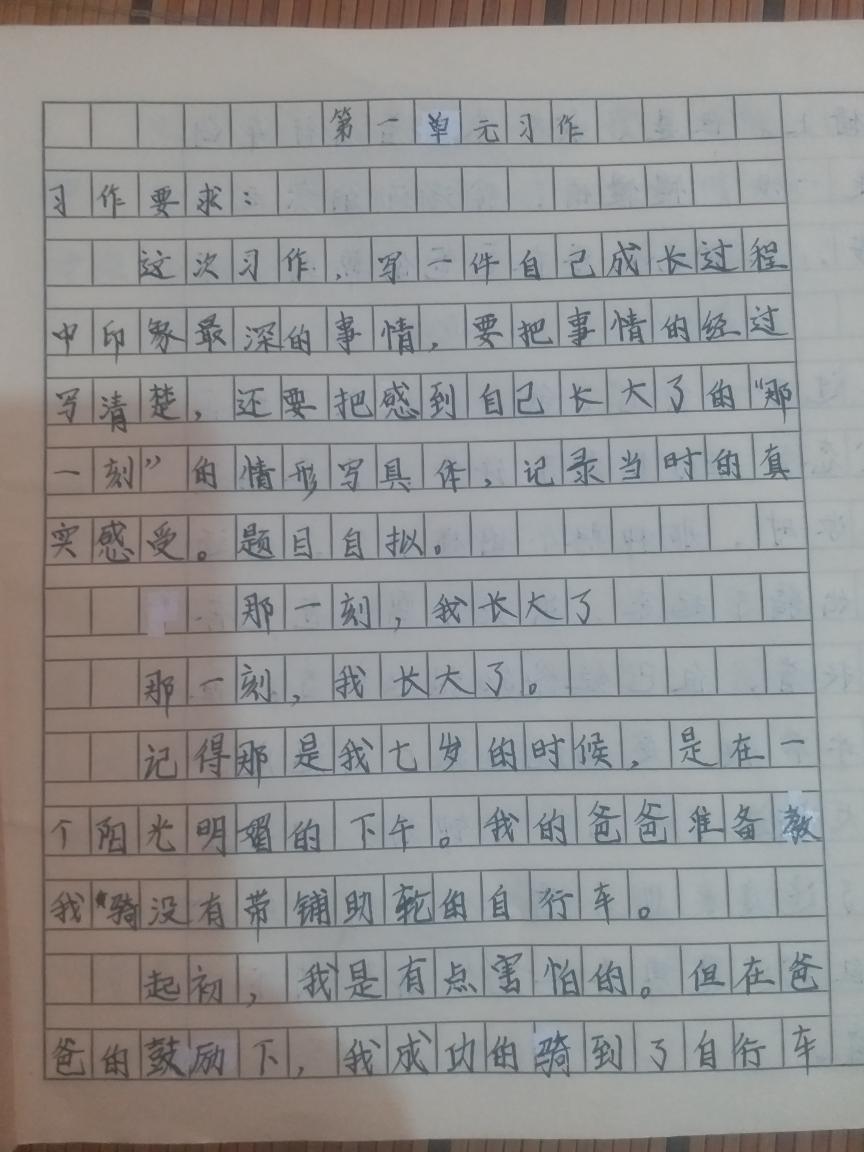 第一单元习作
习作要求：
这次习作，写一件自己成长过程
中印象最深的事情，要把事情的经过
写清楚，还要把感到自己长大了的“那
一刻”的情形写具体，记录当时的真
实感受。题目自拟。
那一刻，我长大了
那一刻，我长大了。
记得那是我七岁的时候，是在一
个阳光明媚的下午。我的爸爸准备教
我骑没有带铺助轮的自行车。
起初，我是有点害怕的。但在爸
爸的鼓励下，我成功的骑到了自行车